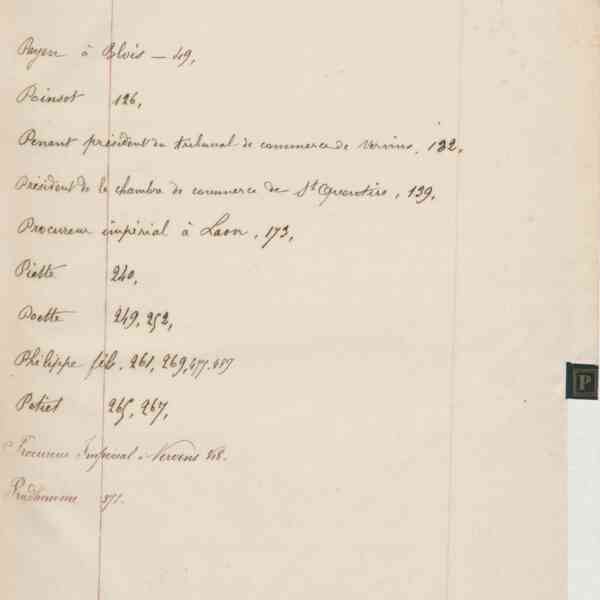 Payen à Blois — 49,
Poinsot 126,
Penant président du tribunal de commerce de Vervins, 132,
Président de la chambre de commerce de St Quentin, 139,
Procureur impérial à Laon, 173,
Piette 240,
Poette 249, 252,
Philippe fils, 261, 269, 477.
Petret 265, 267,
Procureur Impérial à Vervins
Prudhomme
P